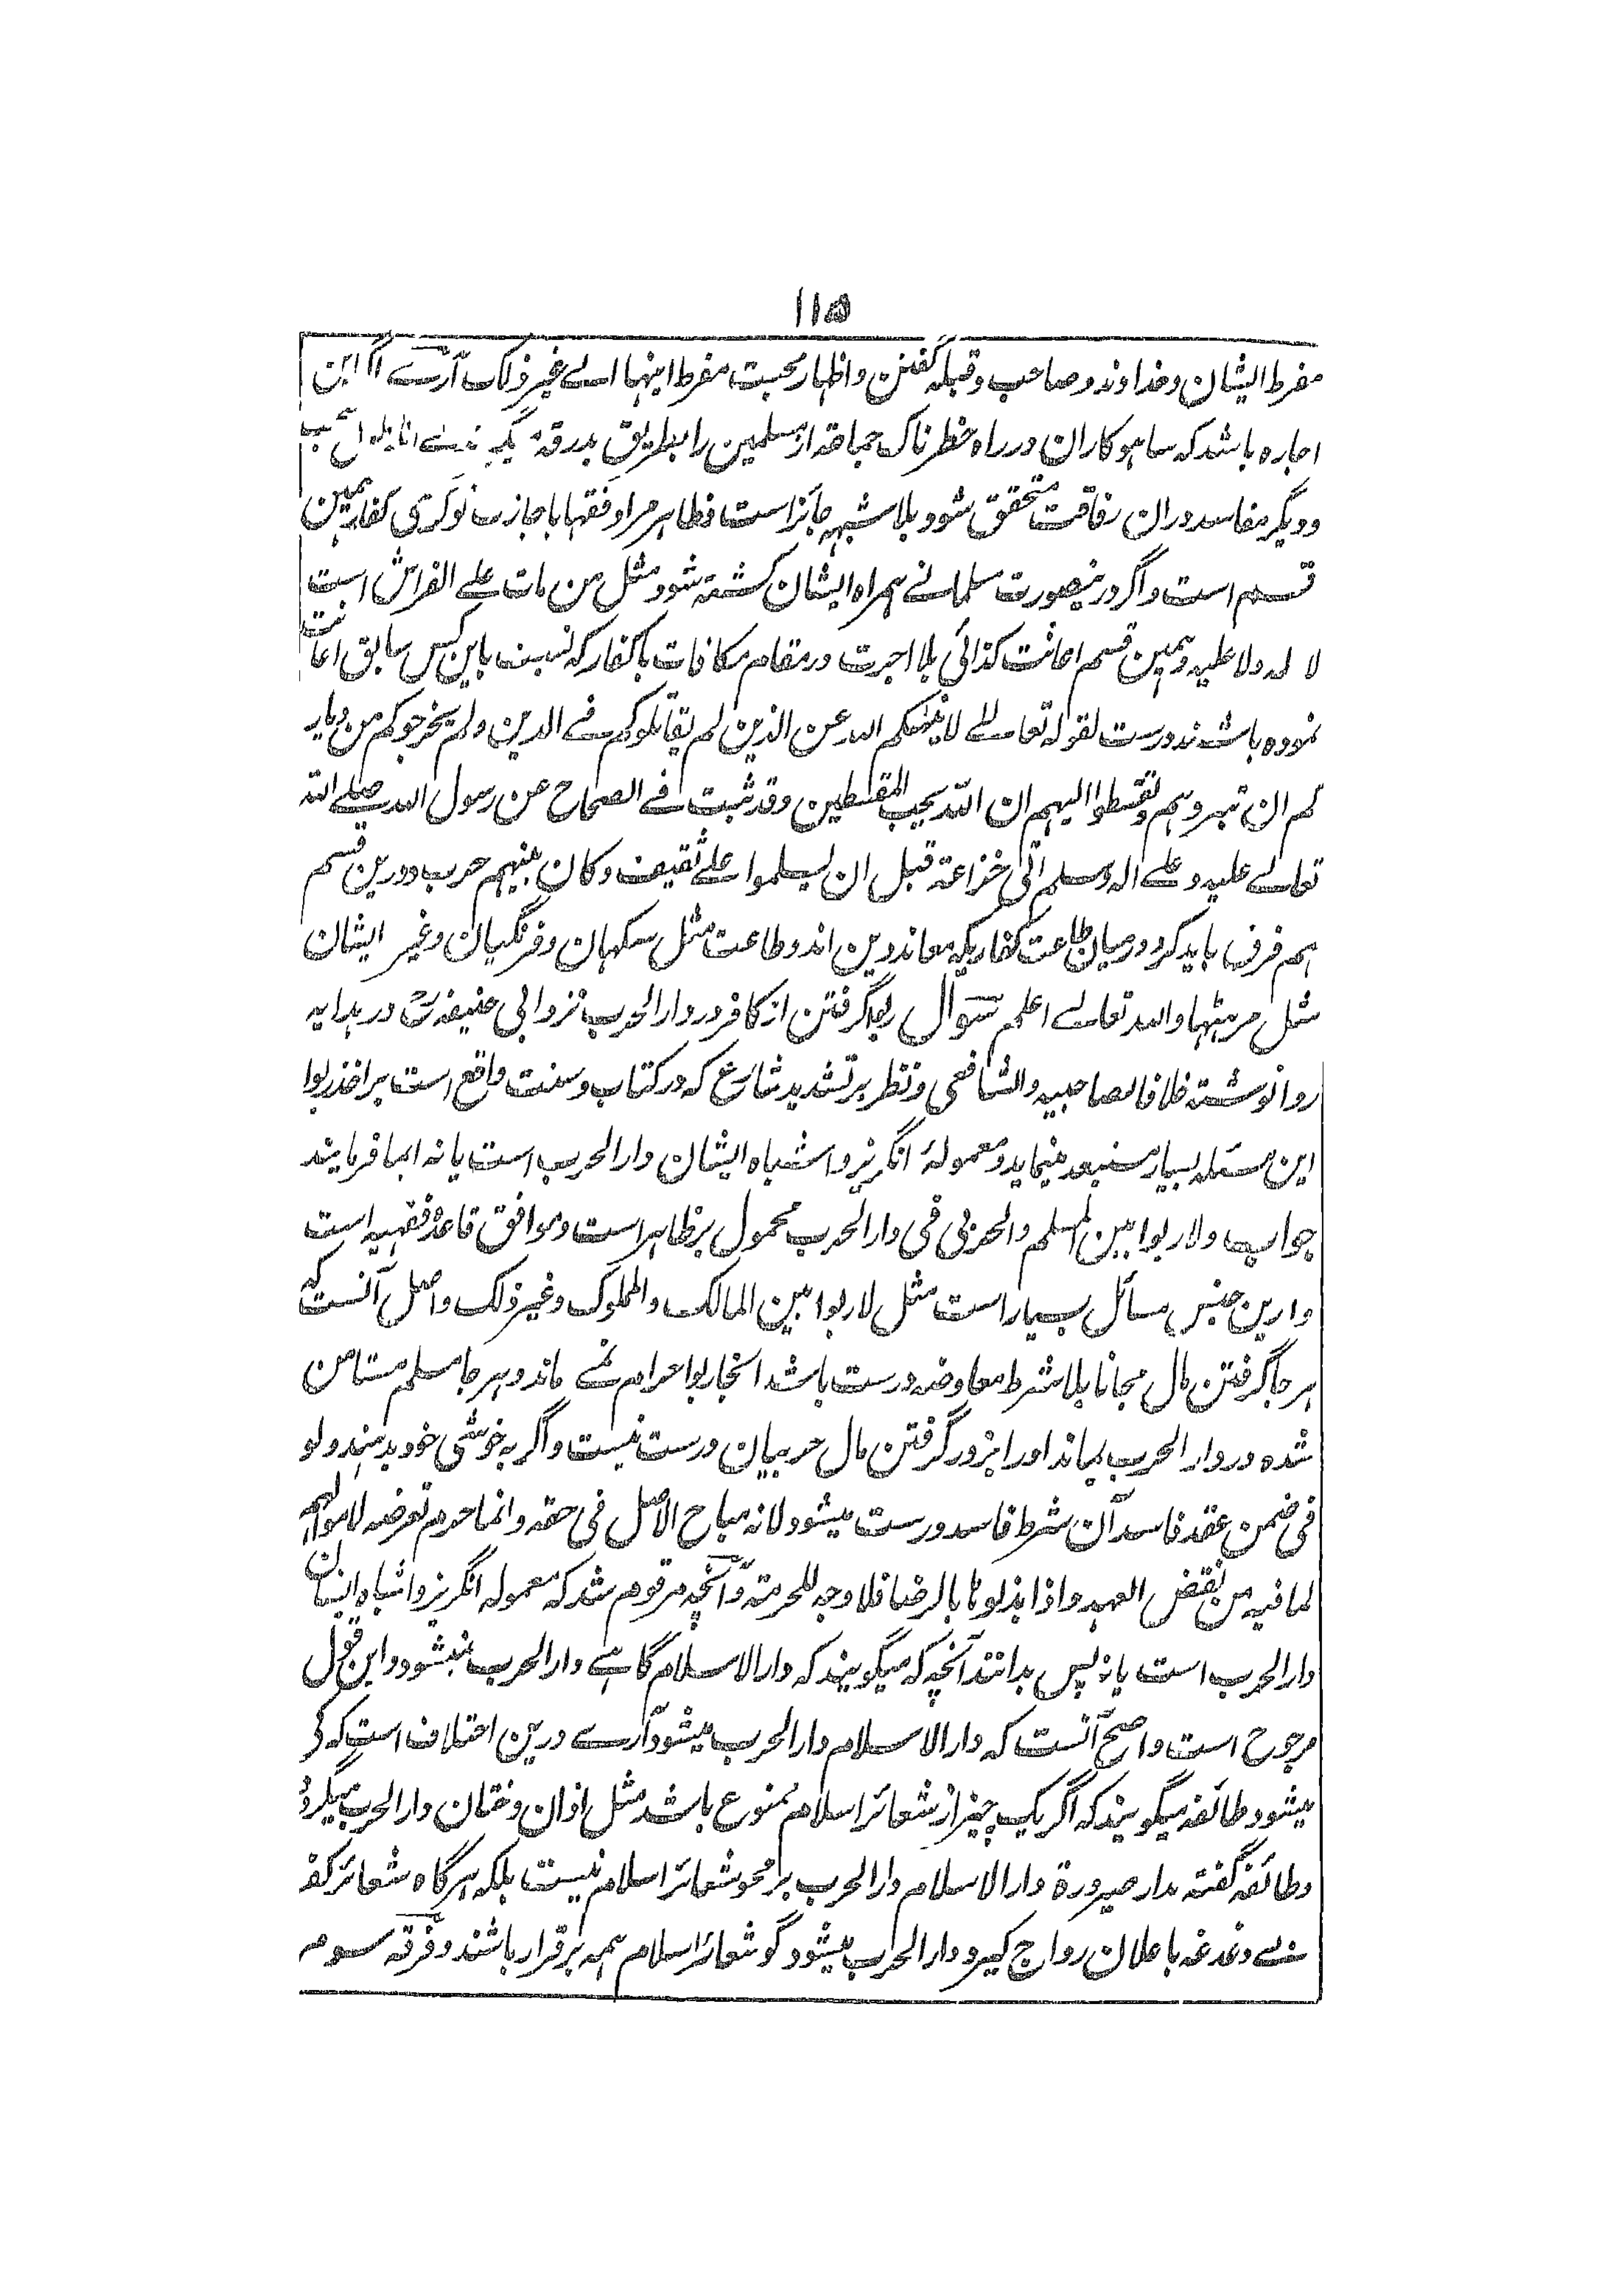 ۱۱۵
مفرط ایشان وخداوند وصاحب وقبله گفتن واظهار محبت مفرط اینها الے غیر ذلک آرے اگر این
اجاره باشد که ساهوکاران در راه خطرناک جماعة از مسلمین را بطریق بدرقه
ودیگر مفاسد دران رفاقت متحقق شود بلا شبهه جائز است وظاهر مراد فقها باجازت نوکری کفار همین
قسم است واگر درینصورت مسلمانے همراه ایشان کشته شود مثل من مات علے الفراش است
لا له ولا علیه وهمین قسم اعانت کذائی بلا اجرت در مقام مکافات باکفار که نسبت باین کس سابق اعانت
نموده باشند درست لقوله تعالے لا ینهکم الله عن الذین لم یقاتلوکم فے الدین ولم یخرجوکم من دیار
کم ان تبروهم وتقسطوا الیهم ان الله یحب المقسطین وقد ثبت فے الصحاح عن رسول الله صلے الله
تعالے علیه وعلے اله وسلم اتی خزاعة قبل ان یسلموا علے ثقیف وکان بینهم حرب ودرین قسم
هم فرق باید کرد درمیان طاعت کفاریکه معاند دین اند وطاعت مثل سکهان وفرنگیان وغیر ایشان
مثل مرهٹها والله تعالے اعلم سوال ربوا گرفتن از کافر در دار الحرب نزد ابی حنیفه رح در هدایه
روا نوشته خلافا لصاحبیه والشافعی ونظر بر تشدید شارع که در کتاب وسنت واقع است بر اخذ ربوا
این مسئله بسیار مستبعد مینماید ومعموله انگریز واشباه ایشان دار الحرب است یا نه ایما فرمایند
جواب ولا ربوا بین المسلم والحربی فی دار الحرب محمول بر ظاهر است وموافق قاعده فقهیه است
وازین جنس مسائل بسیار است مثل لا ربوا بین المالک والمملوک وغیر ذلک واصل آنست که
هر جا گرفتن مال مجانا بلا شرط معاوضه درست باشد انجا ربوا حرام نمے ماند وهر جا مسلم مستامن
شده در دار الحرب بماند اورا بزور گرفتن مال حربیان درست نیست واگر به خوشی خود بدهند ولو
فی ضمن عقد فاسد آن شرط فاسد درست میشود لانه مباح الاصل فی حقه وانما حرم تعرضه لاموالهم
لما فیه من نقض العهد واذا بذلونا بالرضا فلا وجه للحرمة وآنچه مرقوم شد که معموله انگریز واشباه ایشان
دار الحرب است یا نه پس بدانند آنچه که میگویند که دار الاسلام گاهے دار الحرب نمیشود واین قول
مرجوح است واصح آنست که دار الاسلام دار الحرب میشود آرے درین اختلاف است که کے
میشود طائفه میگویند که اگر یک چیز از شعائر اسلام ممنوع باشد مثل اذان وختان دار الحرب میگردد
وطائفه گفته مدار صیرورة دار الاسلام دار الحرب بر محو شعائر اسلام نیست بلکه هر گاه شعائر کفر
بے دغدغه باعلان رواج گیرد دار الحرب میشود گو شعائر اسلام همه برقرار باشند وفرقه سوم